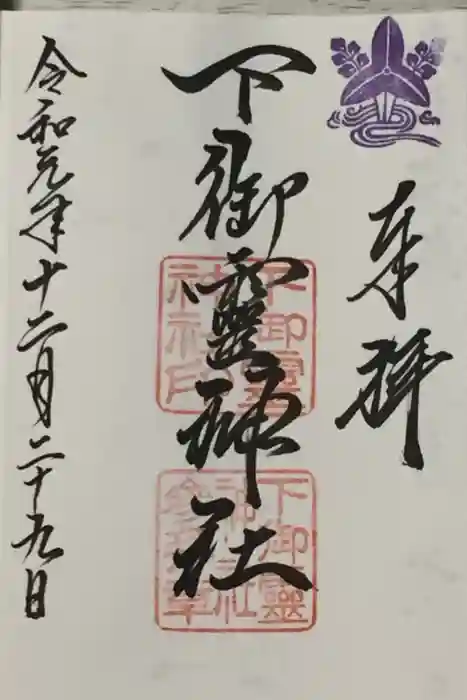 奉拝
下御靈神社
下御霊神社印
下御靈神社参拝之章
令和元年十二月二十九日